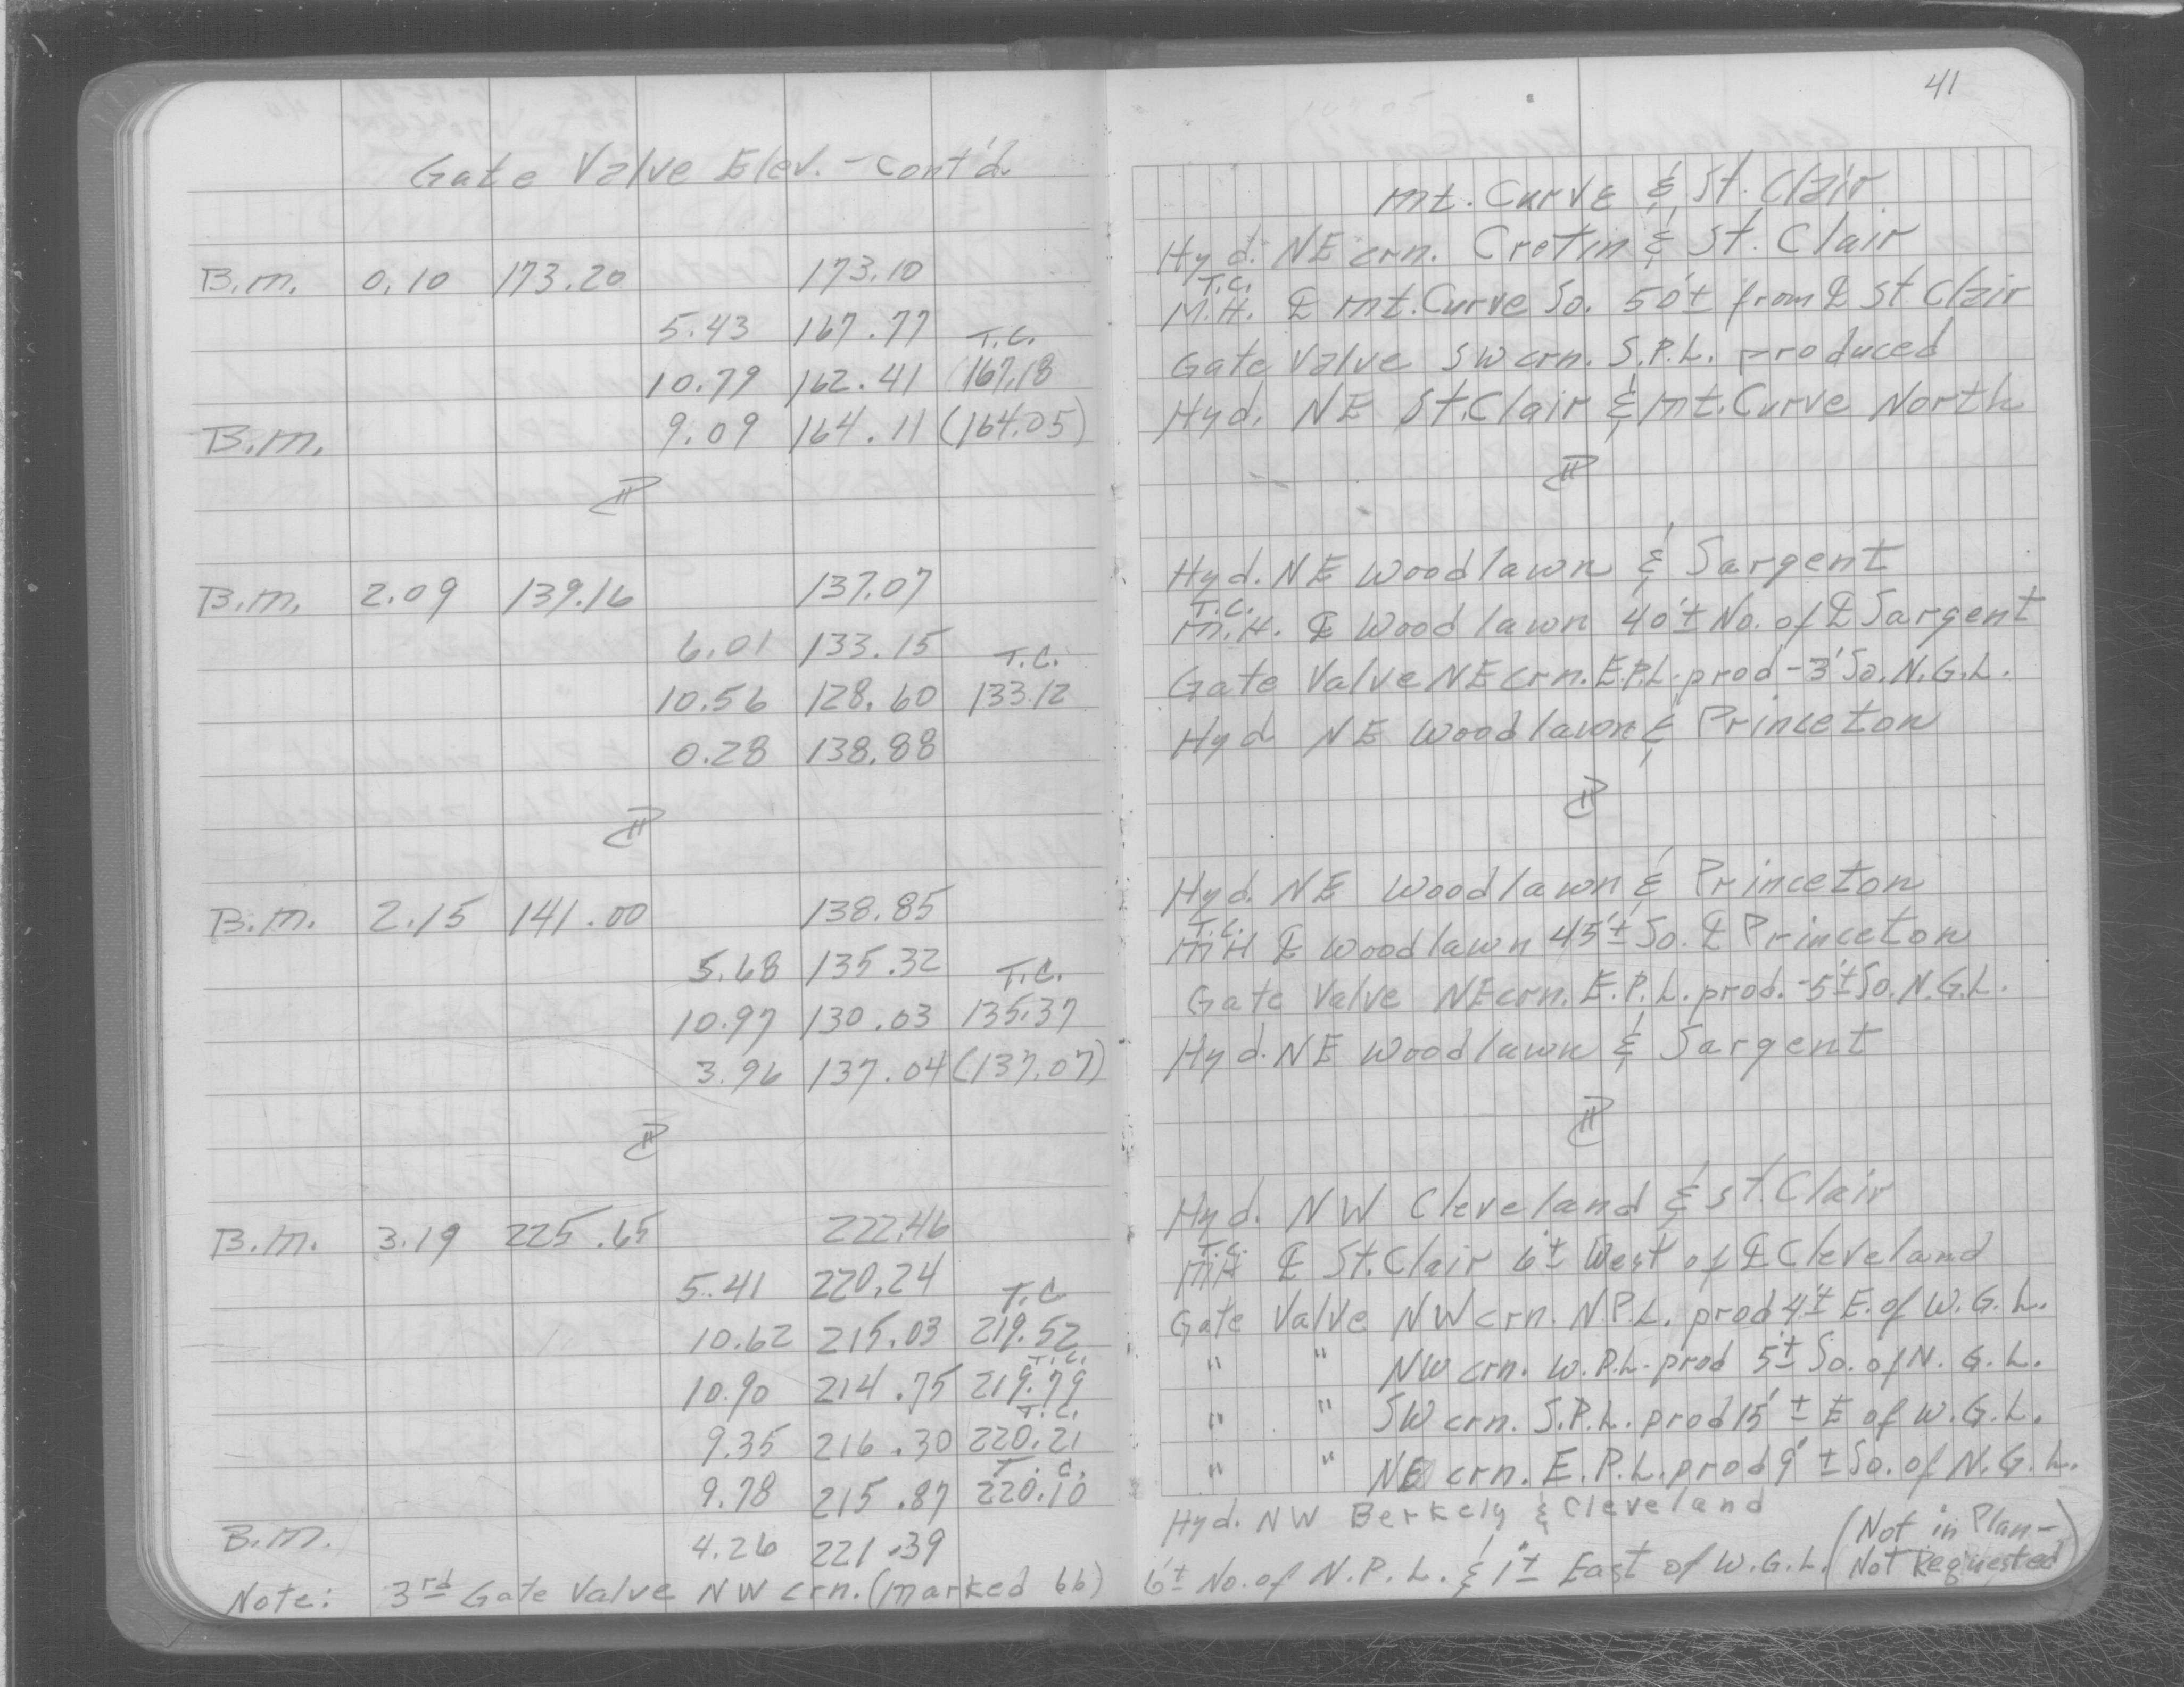 Gate Valve Elev. - cont'd.
B.M. 0.10 173.20 173.10
5.43 167.77 T.C.
10.79 162.41 167.18
B.M. 9.09 164.11 (164.05)
B.M. 2.09 139.16 137.07
6.01 133.15 T.C.
10.56 128.60 133.12
0.28 138.88
B.M. 2.15 141.00 138.85
5.68 135.32 T.C.
10.97 130.03 135.37
3.96 137.04 (137.07)
B.M. 3.19 225.65 222.46
5.41 220.24 T.C.
10.62 215.03 219.52
T.C.
10.90 214.75 219.79
T.C.
9.35 216.30 220.21
T.C.
9.78 215.87 220.10
B.M. 4.26 221.39
Note: 3rd Gate Valve NW crn. (marked 66)
41
Mt. Curve & St. Clair
Hyd. NE crn. Cretin & St. Clair
T.C.
M.H. ℄ Mt. Curve So. 50'± from ℄ St Clair
Gate Valve SW crn. S.P.L. produced
Hyd. NE St. Clair & Mt. Curve North
Hyd. NE Woodlawn & Sargent
T.C.
M.H. ℄ Woodlawn 40'± No. of ℄ Sargent
Gate Valve NE crn. E.P.L. prod - 3' So. N.G.L.
Hyd NE Woodlawn & Princeton
Hyd. NE Woodlawn & Princeton
T.C.
MH ℄ Woodlawn 45'± So. ℄ Princeton
Gate Valve NE crn. E.P.L. prod. - 5'± So. N.G.L.
Hyd. NE Woodlawn & Sargent
Hyd. NW Cleveland & St. Clair
T.C.
MH ℄ St. Clair 6'± West of ℄ Cleveland
Gate Valve NW crn. N.P.L. prod 4'± E. of W.G.L.
" " NW crn. W.P.L. prod 5'± So. of N.G.L.
" " SW crn. S.P.L. prod 15'± E of W.G.L.
" " NE crn. E.P.L. prod 9'± So. of N.G.L.
Hyd. NW Berkely & Cleveland
6'± No. of N.P.L. & 1'± East of W.G.L. (Not in Plan-
Not Requested)